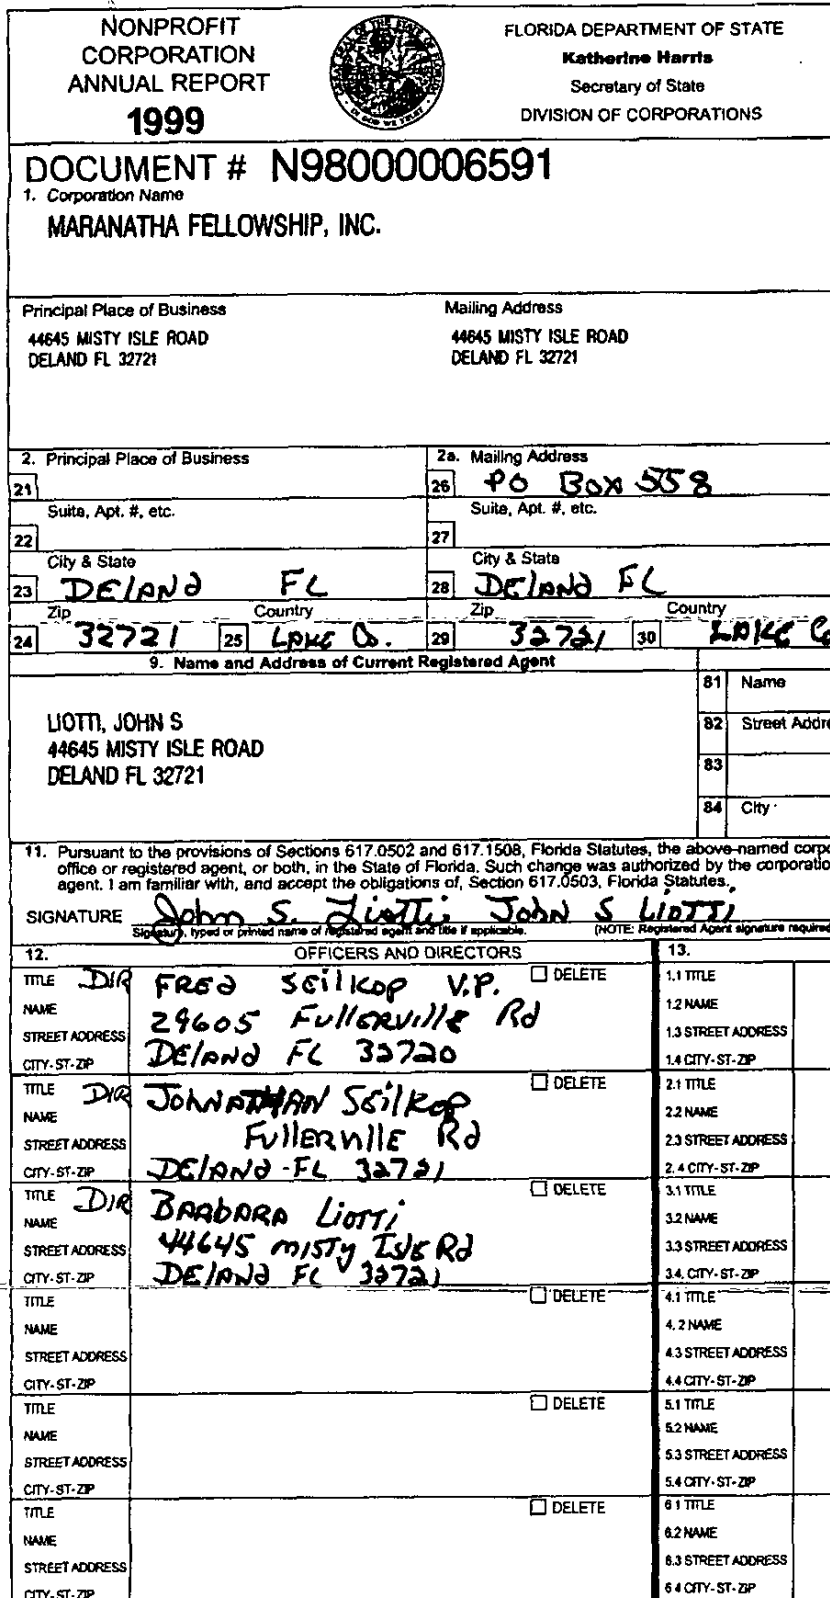 NONPROFIT
CORPORATION
ANNUAL REPORT
1999
FLORIDA DEPARTMENT OF STATE
Katherine Harris
Secretary of State
DIVISION OF CORPORATIONS
DOCUMENT # N98000006591
1. Corporation Name
MARANATHA FELLOWSHIP, INC.
Principal Place of Business
44645 MISTY ISLE ROAD
DELAND FL 32721
Mailing Address
44645 MISTY ISLE ROAD
DELAND FL 32721
2. Principal Place of Business
21
Suite, Apt. #, etc.
22
City & State
23 DElAND FL
Zip Country
24 32721 25 LAKE Co.
2a. Mailing Address
26 PO Box 558
Suite, Apt. #, etc.
27
City & State
28 DElAND FL
Zip Country
29 32721 30 LAKE Co
9. Name and Address of Current Registered Agent
LIOTTI, JOHN S
44645 MISTY ISLE ROAD
DELAND FL 32721
81 Name
82 Street Addre
83
84 City
11. Pursuant to the provisions of Sections 617.0502 and 617.1508, Florida Statutes, the above-named corpo
office or registered agent, or both, in the State of Florida. Such change was authorized by the corporatio
agent. I am familiar with, and accept the obligations of, Section 617.0503, Florida Statutes.
SIGNATURE John S. Liotti John S Liotti
Signature, typed or printed name of registered agent and title if applicable. (NOTE: Registered Agent signature required
12. OFFICERS AND DIRECTORS 13.
TITLE DIR FRED SEilkop V.P. DELETE
NAME
STREET ADDRESS 29605 Fullerville Rd
CITY-ST-ZIP DElAND FL 32720
1.1 TITLE
1.2 NAME
1.3 STREET ADDRESS
1.4 CITY-ST-ZIP
TITLE DIR JOHNATHAN SEilkop DELETE
NAME
STREET ADDRESS FullERville Rd
CITY-ST-ZIP DElAND-FL 32721
2.1 TITLE
2.2 NAME
2.3 STREET ADDRESS
2.4 CITY-ST-ZIP
TITLE DIR BARBARA Liotti DELETE
NAME
STREET ADDRESS 44645 misty Isle Rd
CITY-ST-ZIP DElAND FL 32721
3.1 TITLE
3.2 NAME
3.3 STREET ADDRESS
3.4. CITY-ST-ZIP
TITLE DELETE
NAME
STREET ADDRESS
CITY-ST-ZIP
4.1 TITLE
4.2 NAME
4.3 STREET ADDRESS
4.4 CITY-ST-ZIP
TITLE DELETE
NAME
STREET ADDRESS
CITY-ST-ZIP
5.1 TITLE
5.2 NAME
5.3 STREET ADDRESS
5.4 CITY-ST-ZIP
TITLE DELETE
NAME
STREET ADDRESS
CITY-ST-ZIP
6 1 TITLE
6.2 NAME
6.3 STREET ADDRESS
6 4 CITY-ST-ZIP